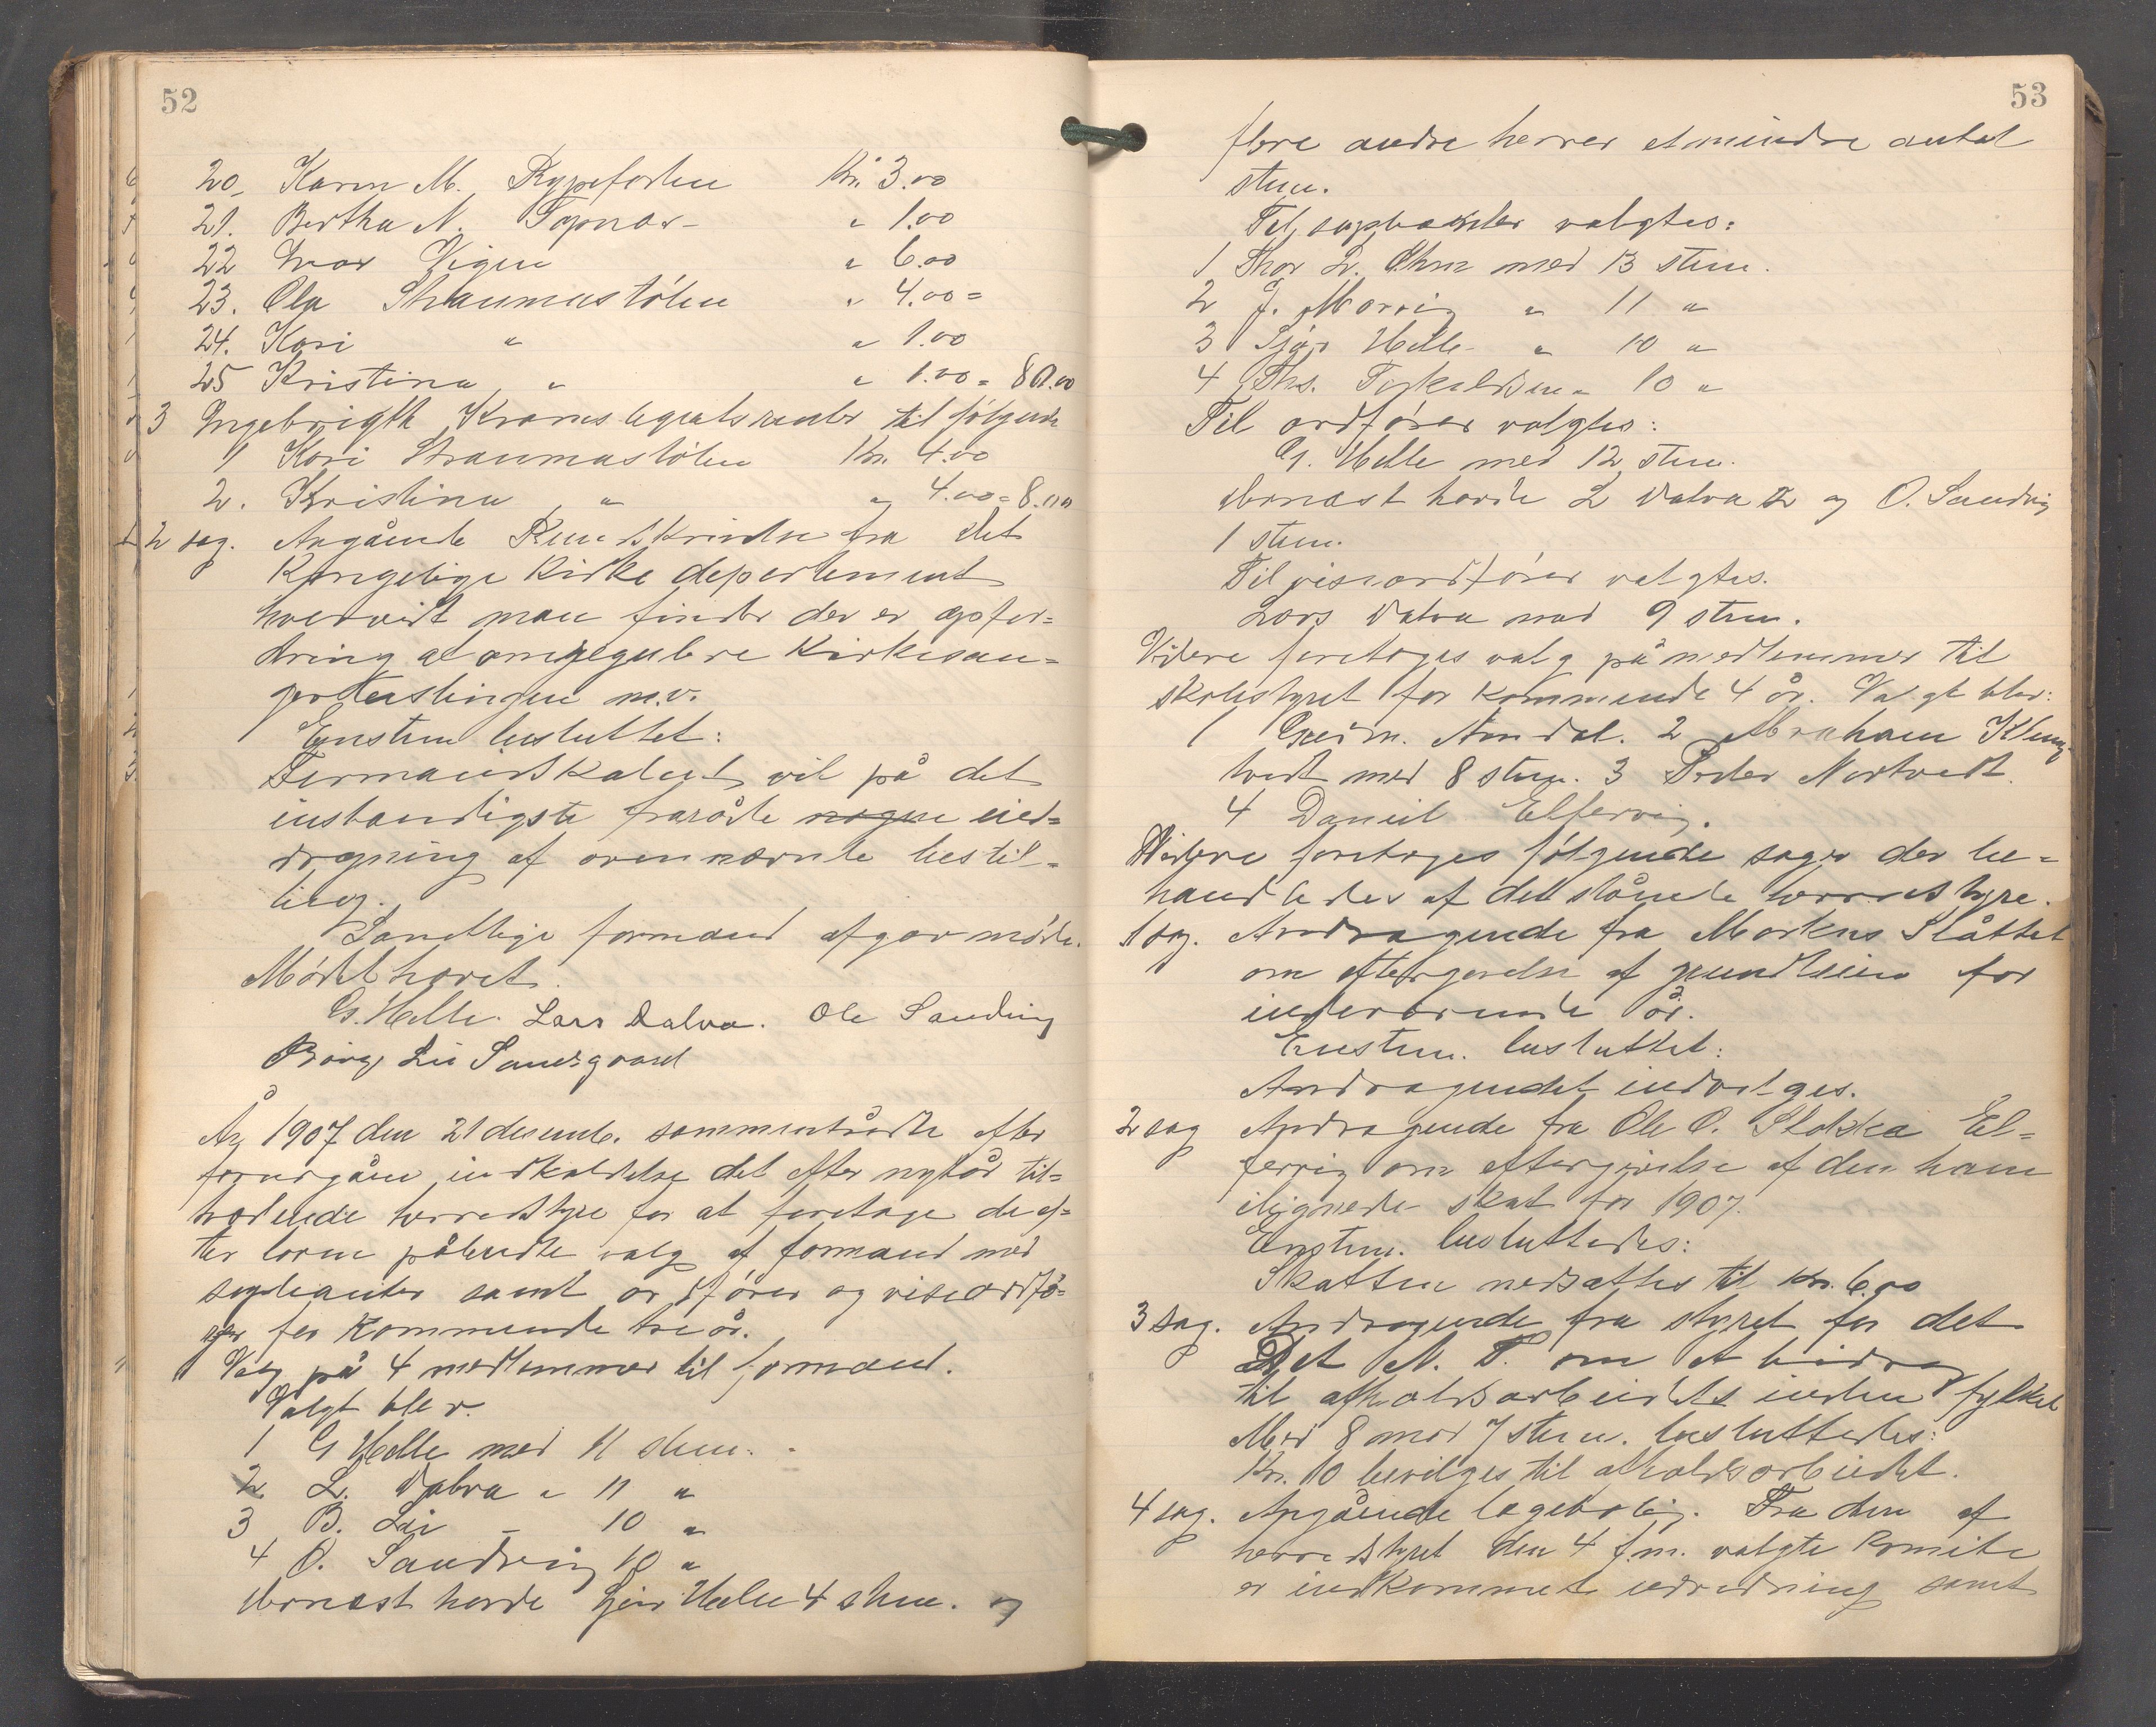 52
20. Karen M. Rypefosten Kr. 3.00
21. Bertha N. Topnes - " 1.00
22 Ivar Vigen " 6.00
23. Ola Straumastölen " 4.00 =
24. Kari " " 1.00
25 Kristina " " 1.00 = 80.00
3 Ingebrigth Krams legatsrenter til følgende
1 Kari Straumastölen Kr. 4.00
2. Kristina " " 4.00 = 8.00
2 sag. Angående Rundskrivelse fra det
Kongelige Kirke departement
hvorvidt man finder der er opfor=
dring at omregulere Kirkesan=
gerbestlingen m.v.
Enstem besluttet:
Formandskabet vil på det
instændigste fraråde nogen ind=
dragning af ovennævnte bestil=
ling.
Samtlige formænd afgav møde.
Mødet hævet.
G. Helle. Lars Dalva. Ole Sandvig
Börge Lie Sandsgaard
År 1907 den 21 desemb. sammentrådte efter
forudgåen indkaldelse det efter nytår til=
trædende herredstyre for at foretage de ef=
ter loven påbudte valg af formænd med
supleanter samt ordfører og viseordfö=
rer for kommende tre år.
Valg på 4 medlemmer til formænd.
Valgt blev.
1 G Helle med 11 stem.
2 L. Dalva " 11 "
3 B. Lie - 10 "
4 O. Sandvig 10 "
dernæst havde Sjur Helle 4 stem. og
53
flere andre herrer et mindre antal
stem.
Til supleanter valgtes:
1 Thor L. Öhrn med 13 stem.
2 J. Morvig " 11 "
3 Sjur Helle " 10 "
4 Ths. Torkeldsen " 10 "
Til ordfører valgtes:
G. Helle med 12 stem.
dernæst havde L Dalva 2 og O. Sandvig
1 stem.
Til viseordfører valgtes.
Lars Dalva med 9 stem.
Videre foretages valg på medlemmer til
skolestyret for kommende 4 år. Valgt blev:
1 Gudm. Amdal. 2 Abraham Klung=
tvedt med 8 stem. 3 Peder Nortvedt.
4 Daniel Eltervig.
Videre foretages følgende sager der be=
handledes af det stående herredstyre.
1 sag. Andragende fra Markus Slåttet
om eftergivelse af grundleien for
indeværende år.
Enstem. besluttet:
Andragendet indvilges.
2 sag Andragende fra Ole O. Slokka El=
tervig om eftergivelse af den ham
ilignede skat for 1907.
Enstem. besluttedes:
Skatten nedsættes til Kr. 6.00
3 sag. Andragende fra styret for det
Det N. T. om et bidrag
til afholdsarbeidets inden fylket
Med 8 mod 7 stem. besluttedes:
Kr. 10 bevilges til afholdsarbeidet.
4 sag. Angående lægebolig. Fra den af
herredstyret den 4 f.m. valgte komite
er indkommet udredning samt